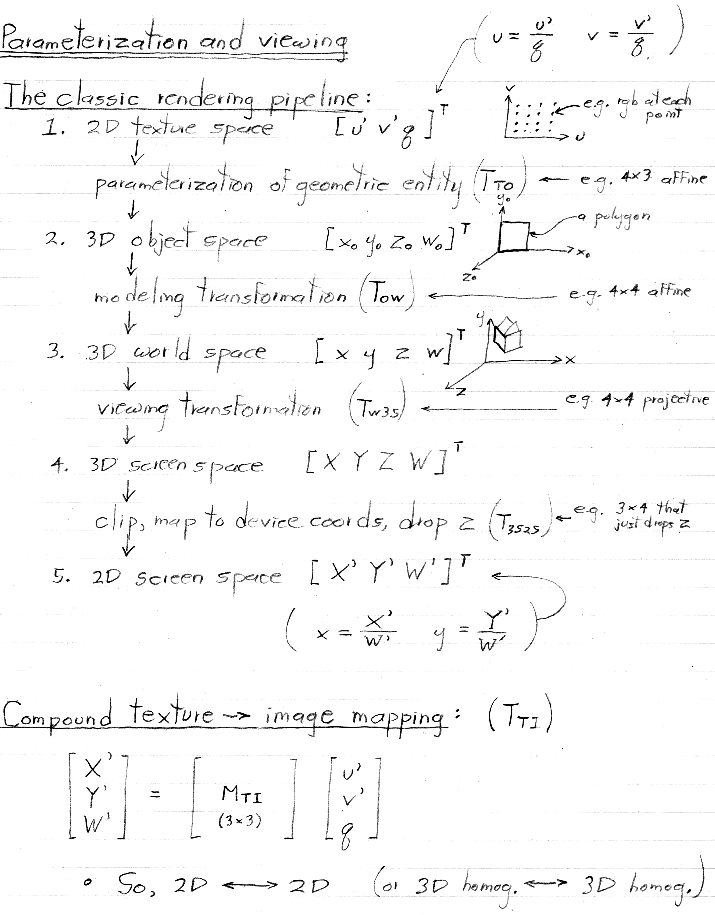 Parameterization and viewing
(u = u'/q v = v'/q)
The classic rendering pipeline:
1. 2D texture space [u' v' q]ᵀ
v
u
e.g. rgb at each point
parameterization of geometric entity (T_TO) ← e.g. 4×3 affine
2. 3D object space [x₀ y₀ z₀ w₀]ᵀ
y₀
x₀
z₀
a polygon
modeling transformation (T_OW) ← e.g. 4×4 affine
3. 3D world space [x y z w]ᵀ
y
x
z
viewing transformation (T_W3S) ← e.g. 4×4 projective
4. 3D screen space [X Y Z W]ᵀ
clip, map to device coords, drop z (T_3S2S) ← e.g. 3×4 that
just drops z
5. 2D screen space [X' Y' W']ᵀ
(x = X'/W' y = Y'/W')
Compound texture → image mapping: (T_TI)
[X' Y' W'] = [M_TI (3×3)] [u' v' q]
• So, 2D ↔ 2D (or 3D homog. ↔ 3D homog.)